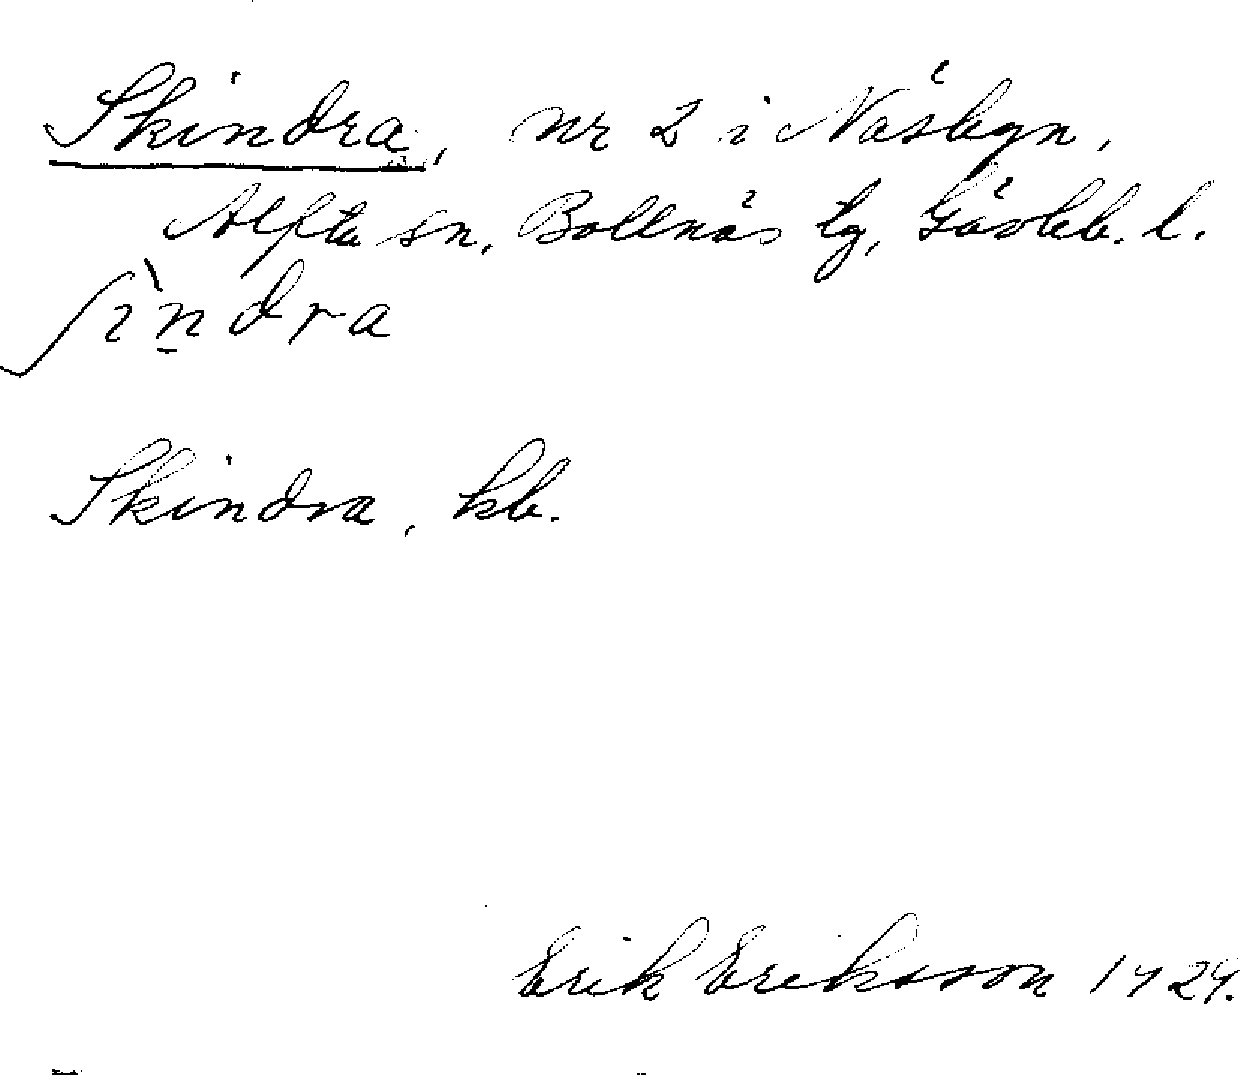 Skindra, nr 2 i Näsbyn,
Alfta sn, Bollnäs tg, Gävleb. l.
ʃìn̠dra
Skindra, kb.
Erik Eriksson 1929.